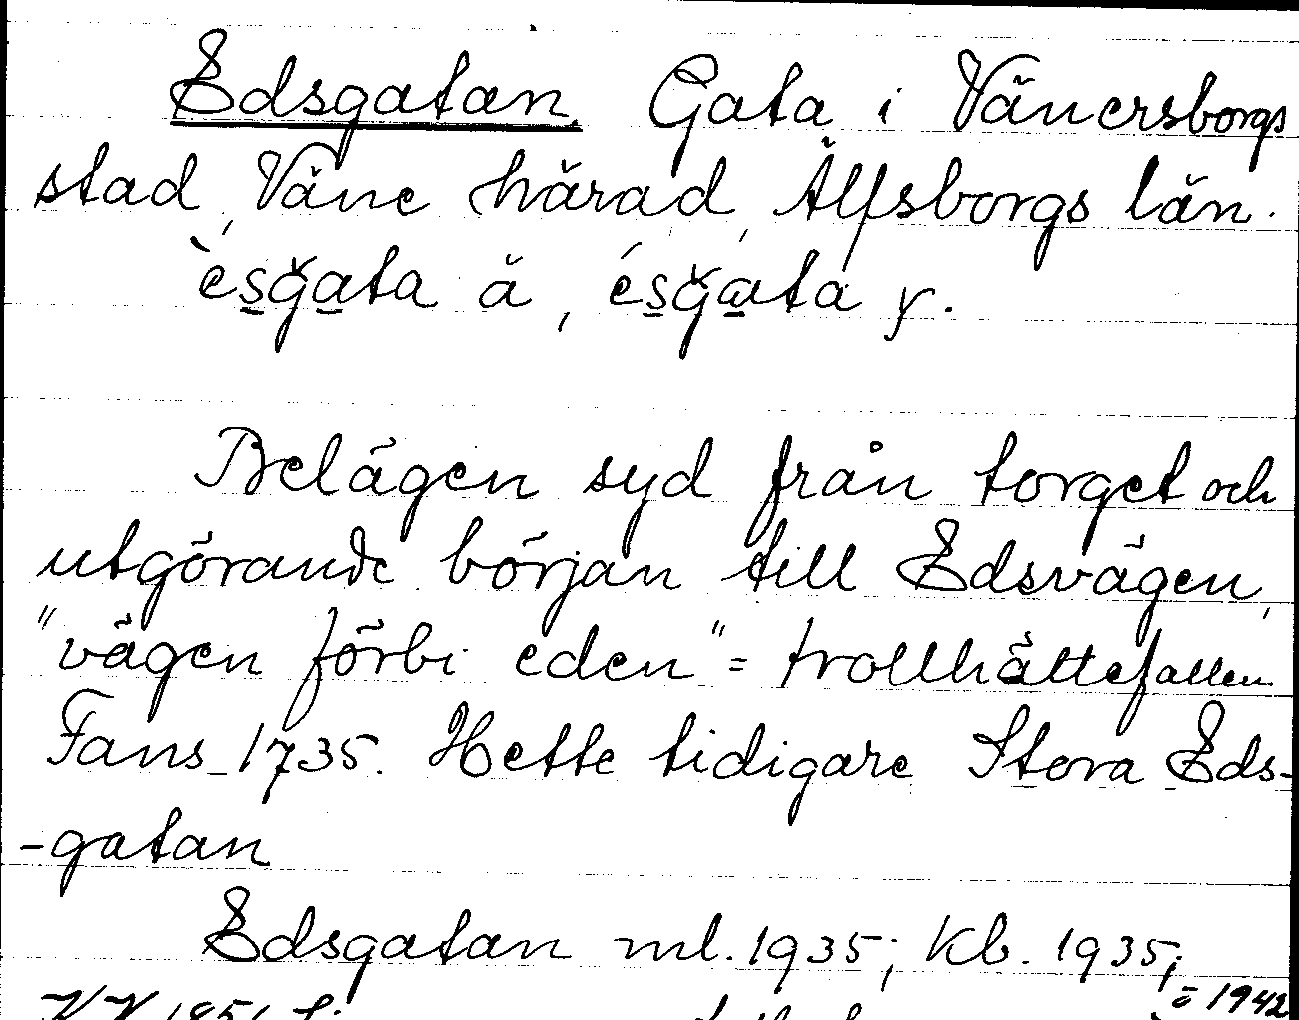 Edsgatan. Gata i Vänersborgs
stad, Väne härad, Älfsborgs län.
èsǧata ä, ésǧata y.
Belägen syd från torget och
utgörande början till Edsvägen,
"vägen förbi eden" = trollhättefallen
Fans 1735. Hette tidigare Stora Eds-
-gatan
Edsgatan ml. 1935; Kb. 1935;
ö 1942